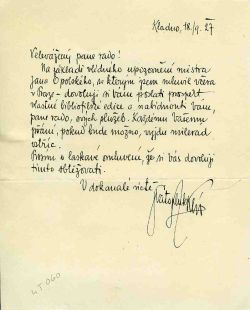 Kladno, 18/9. 27
Velevážený pane rado!
Na základě vlídného upozornění mistra
Jana Opolského, se kterým jsem mluvil včera
v Praze - dovoluji si Vám poslati prospekt
vlastní bibliofilské edice a nabídnouti Vám,
pane rado, svých služeb. Každému Vašemu
přání, pokud bude možno, vyjdu milerád
vstříc.
Prosím o laskavé omluvení, že si Vás dovoluji
tímto obtěžovati.
V dokonalé úctě